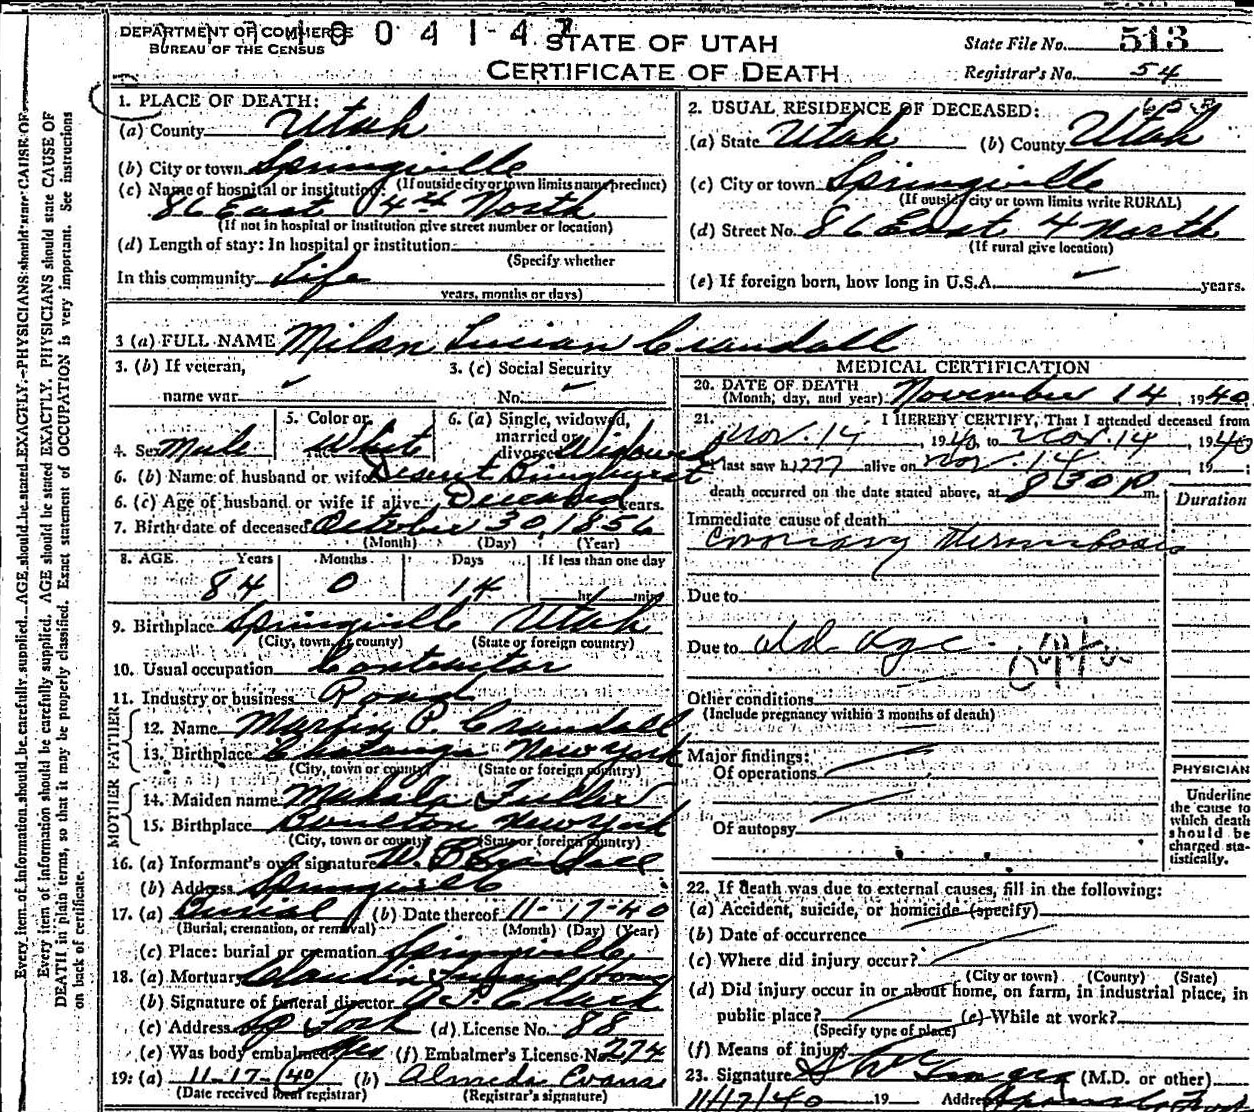 Every item of information should be carefully supplied. AGE should be stated EXACTLY. PHYSICIANS should state CAUSE OF
Every item of information should be carefully supplied. AGE should be stated EXACTLY. PHYSICIANS should state CAUSE OF
DEATH in plain terms, so that it may be properly classified. Exact statement of OCCUPATION is very important. See instructions
on back of certificate.
DEPARTMENT OF COMMERCE
BUREAU OF THE CENSUS
STATE OF UTAH
CERTIFICATE OF DEATH
State File No. 513
Registrar's No. 54
1. PLACE OF DEATH:
(a) County Utah
(b) City or town Springville
(If outside city or town limits name precinct)
(c) Name of hospital or institution:
86 East 4th North
(If not in hospital or institution give street number or location)
(d) Length of stay: In hospital or institution
(Specify whether
In this community Life
years, months or days)
2. USUAL RESIDENCE OF DECEASED:
(a) State Utah (b) County Utah
(c) City or town Springville
(If outside city or town limits write RURAL)
(d) Street No. 86 East 4 North
(If rural give location)
(e) If foreign born, how long in U.S.A. years.
3 (a) FULL NAME Milan Lucian Crandall
3. (b) If veteran,
name war
3. (c) Social Security
No.
4. Sex Male
5. Color or
race White
6. (a) Single, widowed,
married or
divorced Widowed
6. (b) Name of husband or wife
6. (c) Age of husband or wife if alive Deceased years.
7. Birth date of deceased October 30, 1856
(Month) (Day) (Year)
8. AGE Years Months Days If less than one day
84 0 14 hr. min.
9. Birthplace Springville Utah
(City, town, or county) (State or foreign country)
10. Usual occupation Contractor
11. Industry or business Road
FATHER
12. Name Martin P. Crandall
13. Birthplace New York
(City, town or county) (State or foreign country)
MOTHER
14. Maiden name Fuller
15. Birthplace New York
(City, town or county) (State or foreign country)
16. (a) Informant's own signature Crandall
(b) Address Springville
17. (a) Burial (b) Date thereof 11-17-40
(Burial, cremation, or removal) (Month) (Day) (Year)
(c) Place: burial or cremation Springville
18. (a) Mortuary Claudin Funeral Home
(b) Signature of funeral director
(c) Address Sp Fork (d) License No. 88
(e) Was body embalmed Yes (f) Embalmer's License No. 274
19: (a) 11-17-40 (b) Almeda Evans
(Date received local registrar) (Registrar's signature)
MEDICAL CERTIFICATION
20. DATE OF DEATH
(Month, day, and year) November 14, 1940
21. I HEREBY CERTIFY, That I attended deceased from
Nov. 14, 1940, to Nov. 14, 1940
I last saw him alive on Nov. 14 19
death occurred on the date stated above, at 8 30 P m.
Duration
Immediate cause of death
Coronary Thrombosis
Due to
Due to old age
Other conditions
(Include pregnancy within 3 months of death)
Major findings:
Of operations
Of autopsy
PHYSICIAN
Underline
the cause to
which death
should be
charged sta-
tistically.
22. If death was due to external causes, fill in the following:
(a) Accident, suicide, or homicide (specify)
(b) Date of occurrence
(c) Where did injury occur?
(City or town) (County) (State)
(d) Did injury occur in or about home, on farm, in industrial place, in
public place? (e) While at work?
(Specify type of place)
(f) Means of injury
23. Signature (M.D. or other)
11/17/40 19 Address